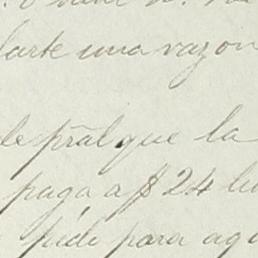 darte una razon
de pral que la
paga a $24
pide para aqu